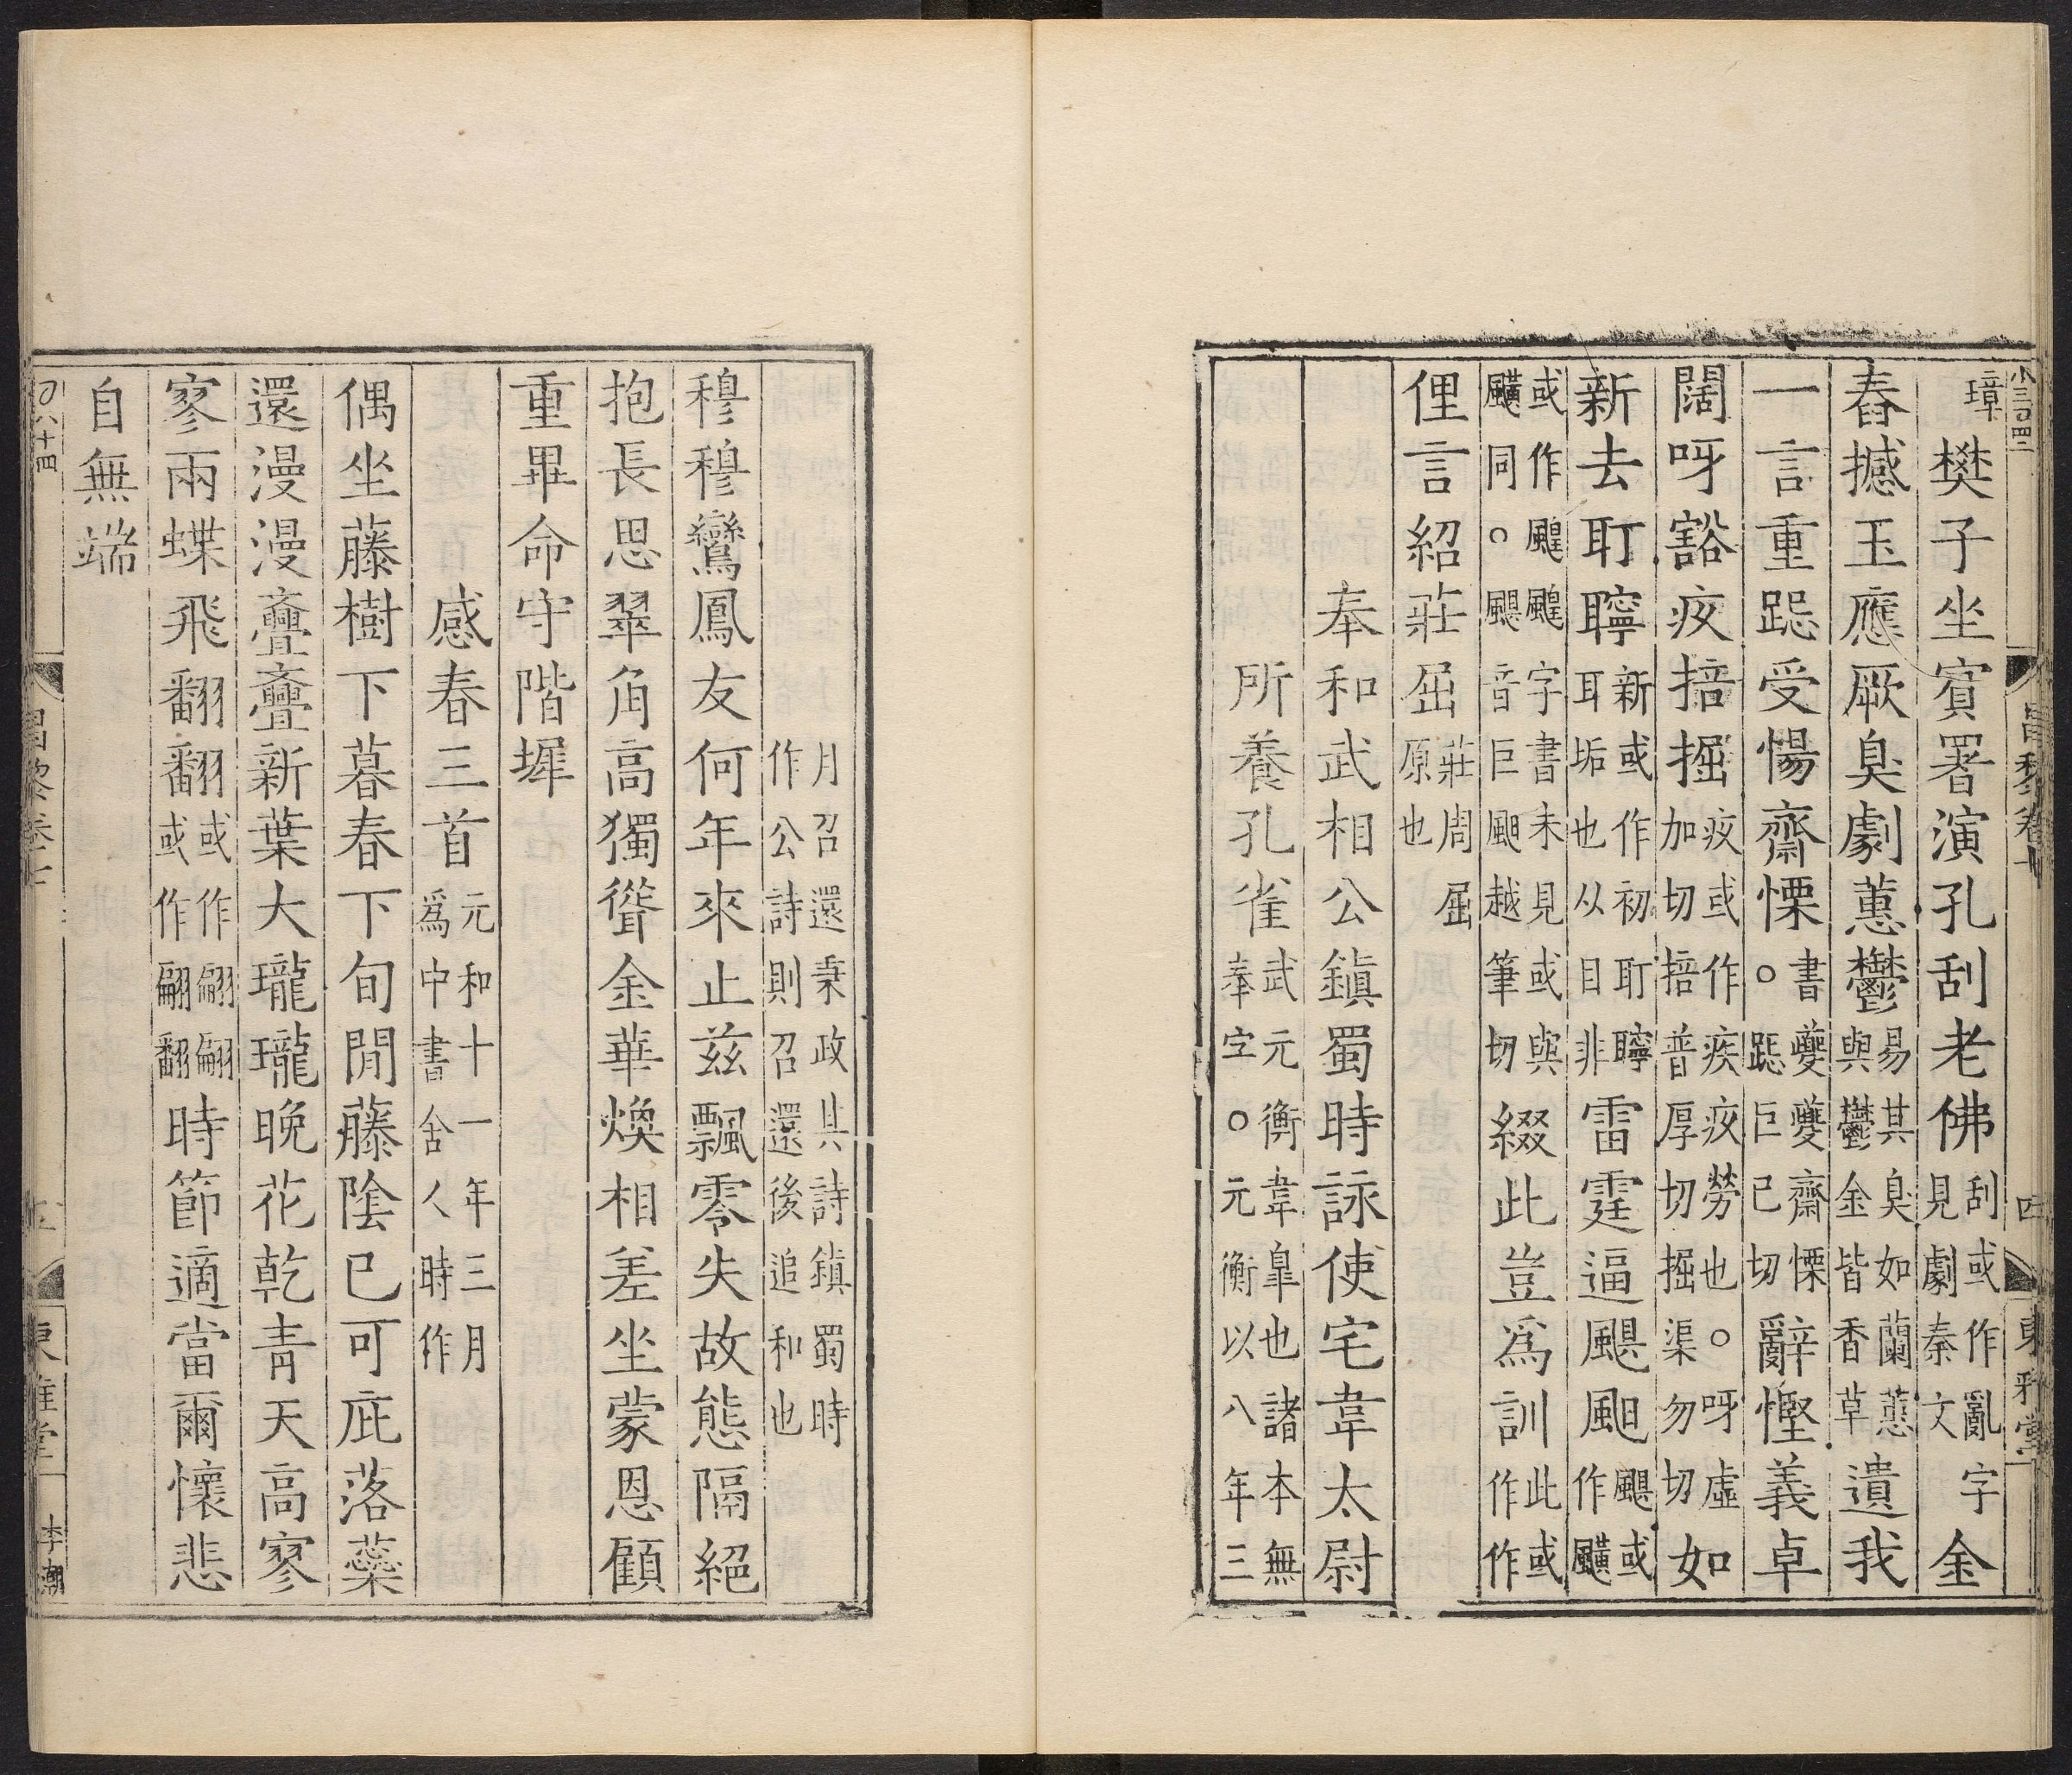 璋樊子坐賓署演孔刮老佛刮或作亂字見劇秦文金
舂撼玉應厥臭劇蕙鬱易其臭如蘭蕙與鬱金皆香草遺我
一言重跽受惕齋慄書夔夔齋慄○跽巨已切辭慳義卓
闊呀豁疚掊掘疚或作疾疚勞也○呀虛加切掊普厚切掘渠勿切如
新去耵聹新或作初耵聹耳垢也从目非雷霆逼颶䬍颶或作䬝
或作䬖䬖字書未見或與䬝同○颶音巨䬍越筆切綴此豈爲訓此或作作
俚言紹莊屈莊周屈原也
奉和武相公鎮蜀時詠使宅韋太尉
所養孔雀武元衡韋臯也諸本無奉字○元衡以八年三
月召還秉政具詩鎮蜀時作公詩則召還後追和也
穆穆鸞鳳友何年來止兹飄零失故態隔絕
抱長思翠角高獨聳金華煥相差坐蒙恩顧
重畢命守階墀
感春三首元和十一年三月爲中書舍人時作
偶坐藤樹下暮春下旬閒藤陰已可庇落蘂
還漫漫亹亹新葉大瓏瓏晚花乾青天高寥
寥兩蝶飛翻翻或作翩翩或作翩翻時節適當爾懷悲
自無端